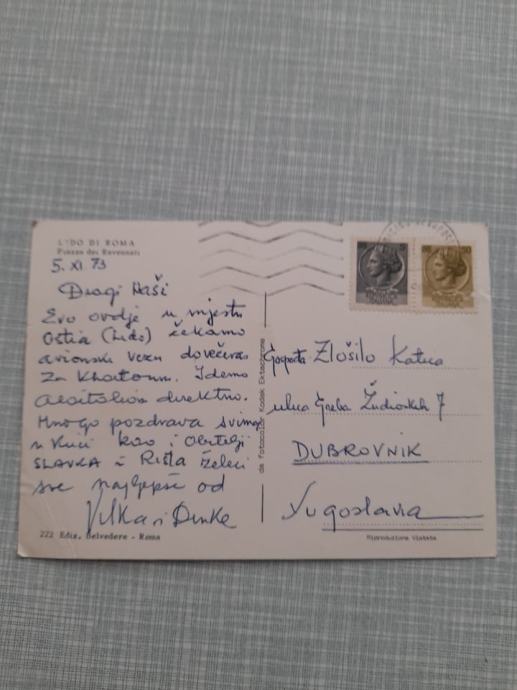 LIDO DI ROMA
Piazza dei Ravennati
5. XI 73
Dragi Naši
Evo ovdje u mjestu
Ostia (Lido) čekamo
avionsku vezu dovečeras
Za Khartoum. Idemo
direktno.
Mnogo pozdrava svima
u kući kao i obitelji
SLAVKA i Rista želeći
sve najljepše od
i Dinke
222 Ediz. Belvedere - Roma
da Fotocolor Kodak Ektachrome
Gospođa Zlošilo Katica
ulica Greba Žudioskih 7
DUBROVNIK
Yugoslavia
Riproduzione Vietata